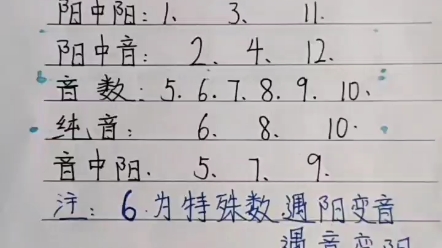 阳中阳：1、 3、 11.
阳中音： 2、 4、 12.
音数：5. 6. 7. 8. 9. 10、
纯音： 6、 8、 10.
音中阳、 5、 7、 9.
注：6.为特殊数.遇阳变音
遇音变阳